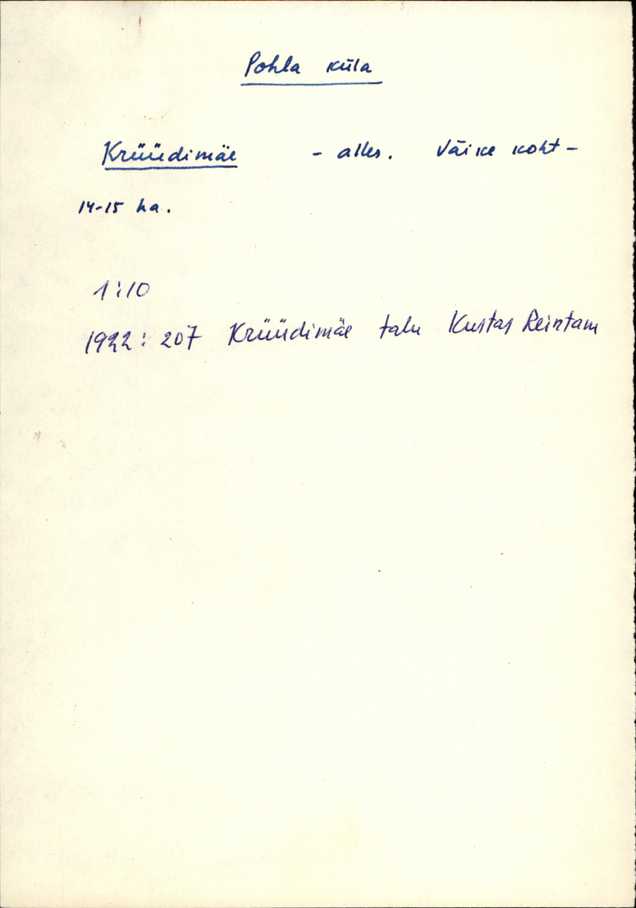 Pohla küla
Krüüdimäe - alles. Väike koht -
14-15 ha.
1:10
1922: 207 Krüüdimäe talu Kustas Reintam